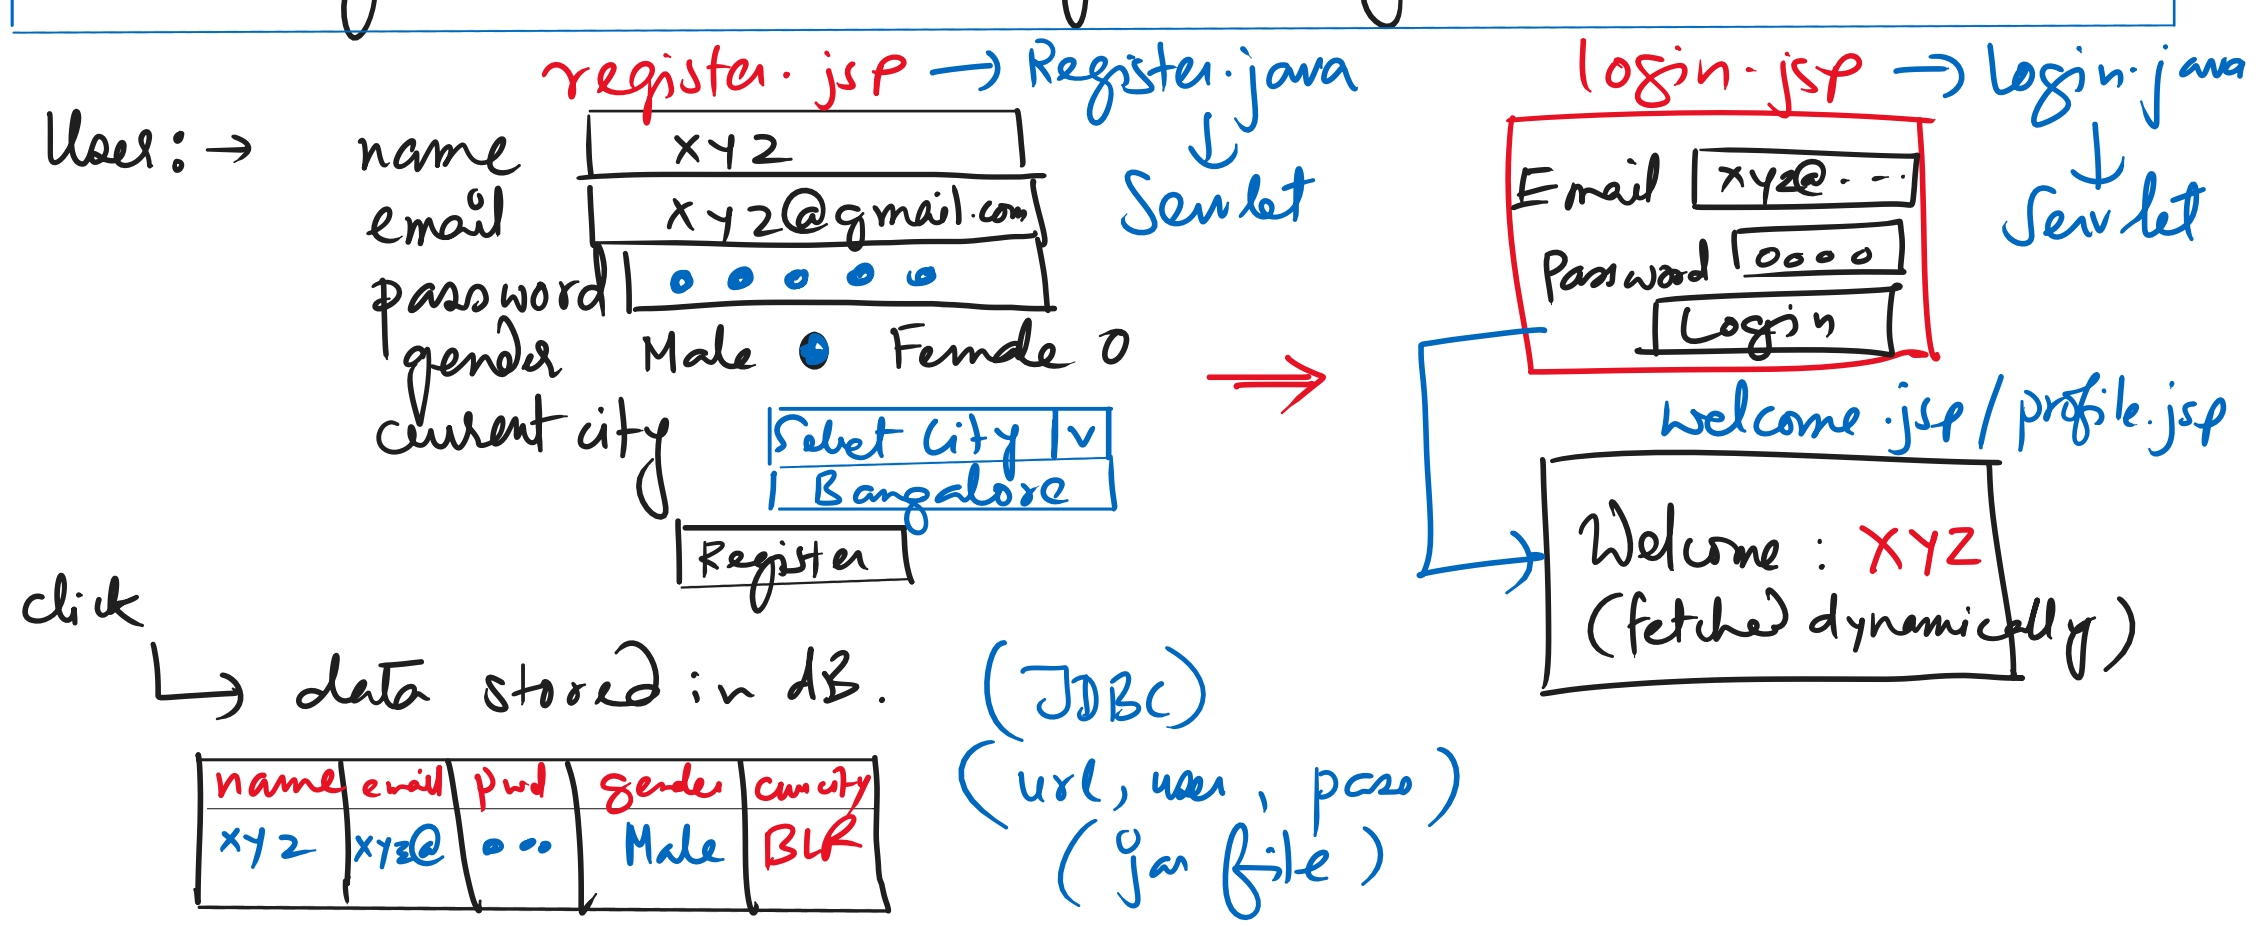 register.jsp → Register.java
↓
Servlet
User: →
name xyz
email xyz@gmail.com
password
gender Male Female
current city Select City v
Bangalore
Register
click
data stored in dB.
(JDBC)
(url, user, pass)
(jar file)
name email pwd gender curr city
xyz xyz@ Male BLR
login.jsp → Login.java
↓
Servlet
Email xyz@...
Password
Login
welcome.jsp / profile.jsp
Welcome : XYZ
(fetched dynamically)